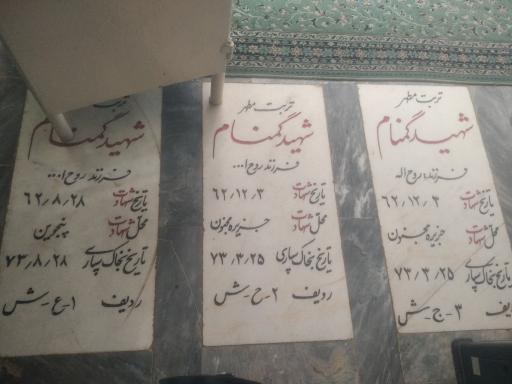 تربت مطهر
شهید گمنام
فرزند روح الله
تاریخ شهادت ۶۲٫۱۲٫۳
محل شهادت جزیره مجنون
تاریخ بخاک سپاری ۷۳٫۳٫۲۵
ردیف ۳-ج-ش
تربت مطهر
شهید گمنام
فرزند روح ا...
تاریخ شهادت ۶۲٫۱۲٫۳
محل شهادت جزیره مجنون
تاریخ بخاک سپاری ۷۳٫۳٫۲۵
ردیف ۲-ح-ش
تربت مطهر
شهید گمنام
فرزند روح ا...
تاریخ شهادت ۶۲٫۸٫۲۸
محل شهادت پنجوین
تاریخ بخاک سپاری ۷۳٫۸٫۲۸
ردیف ۱-ع-ش